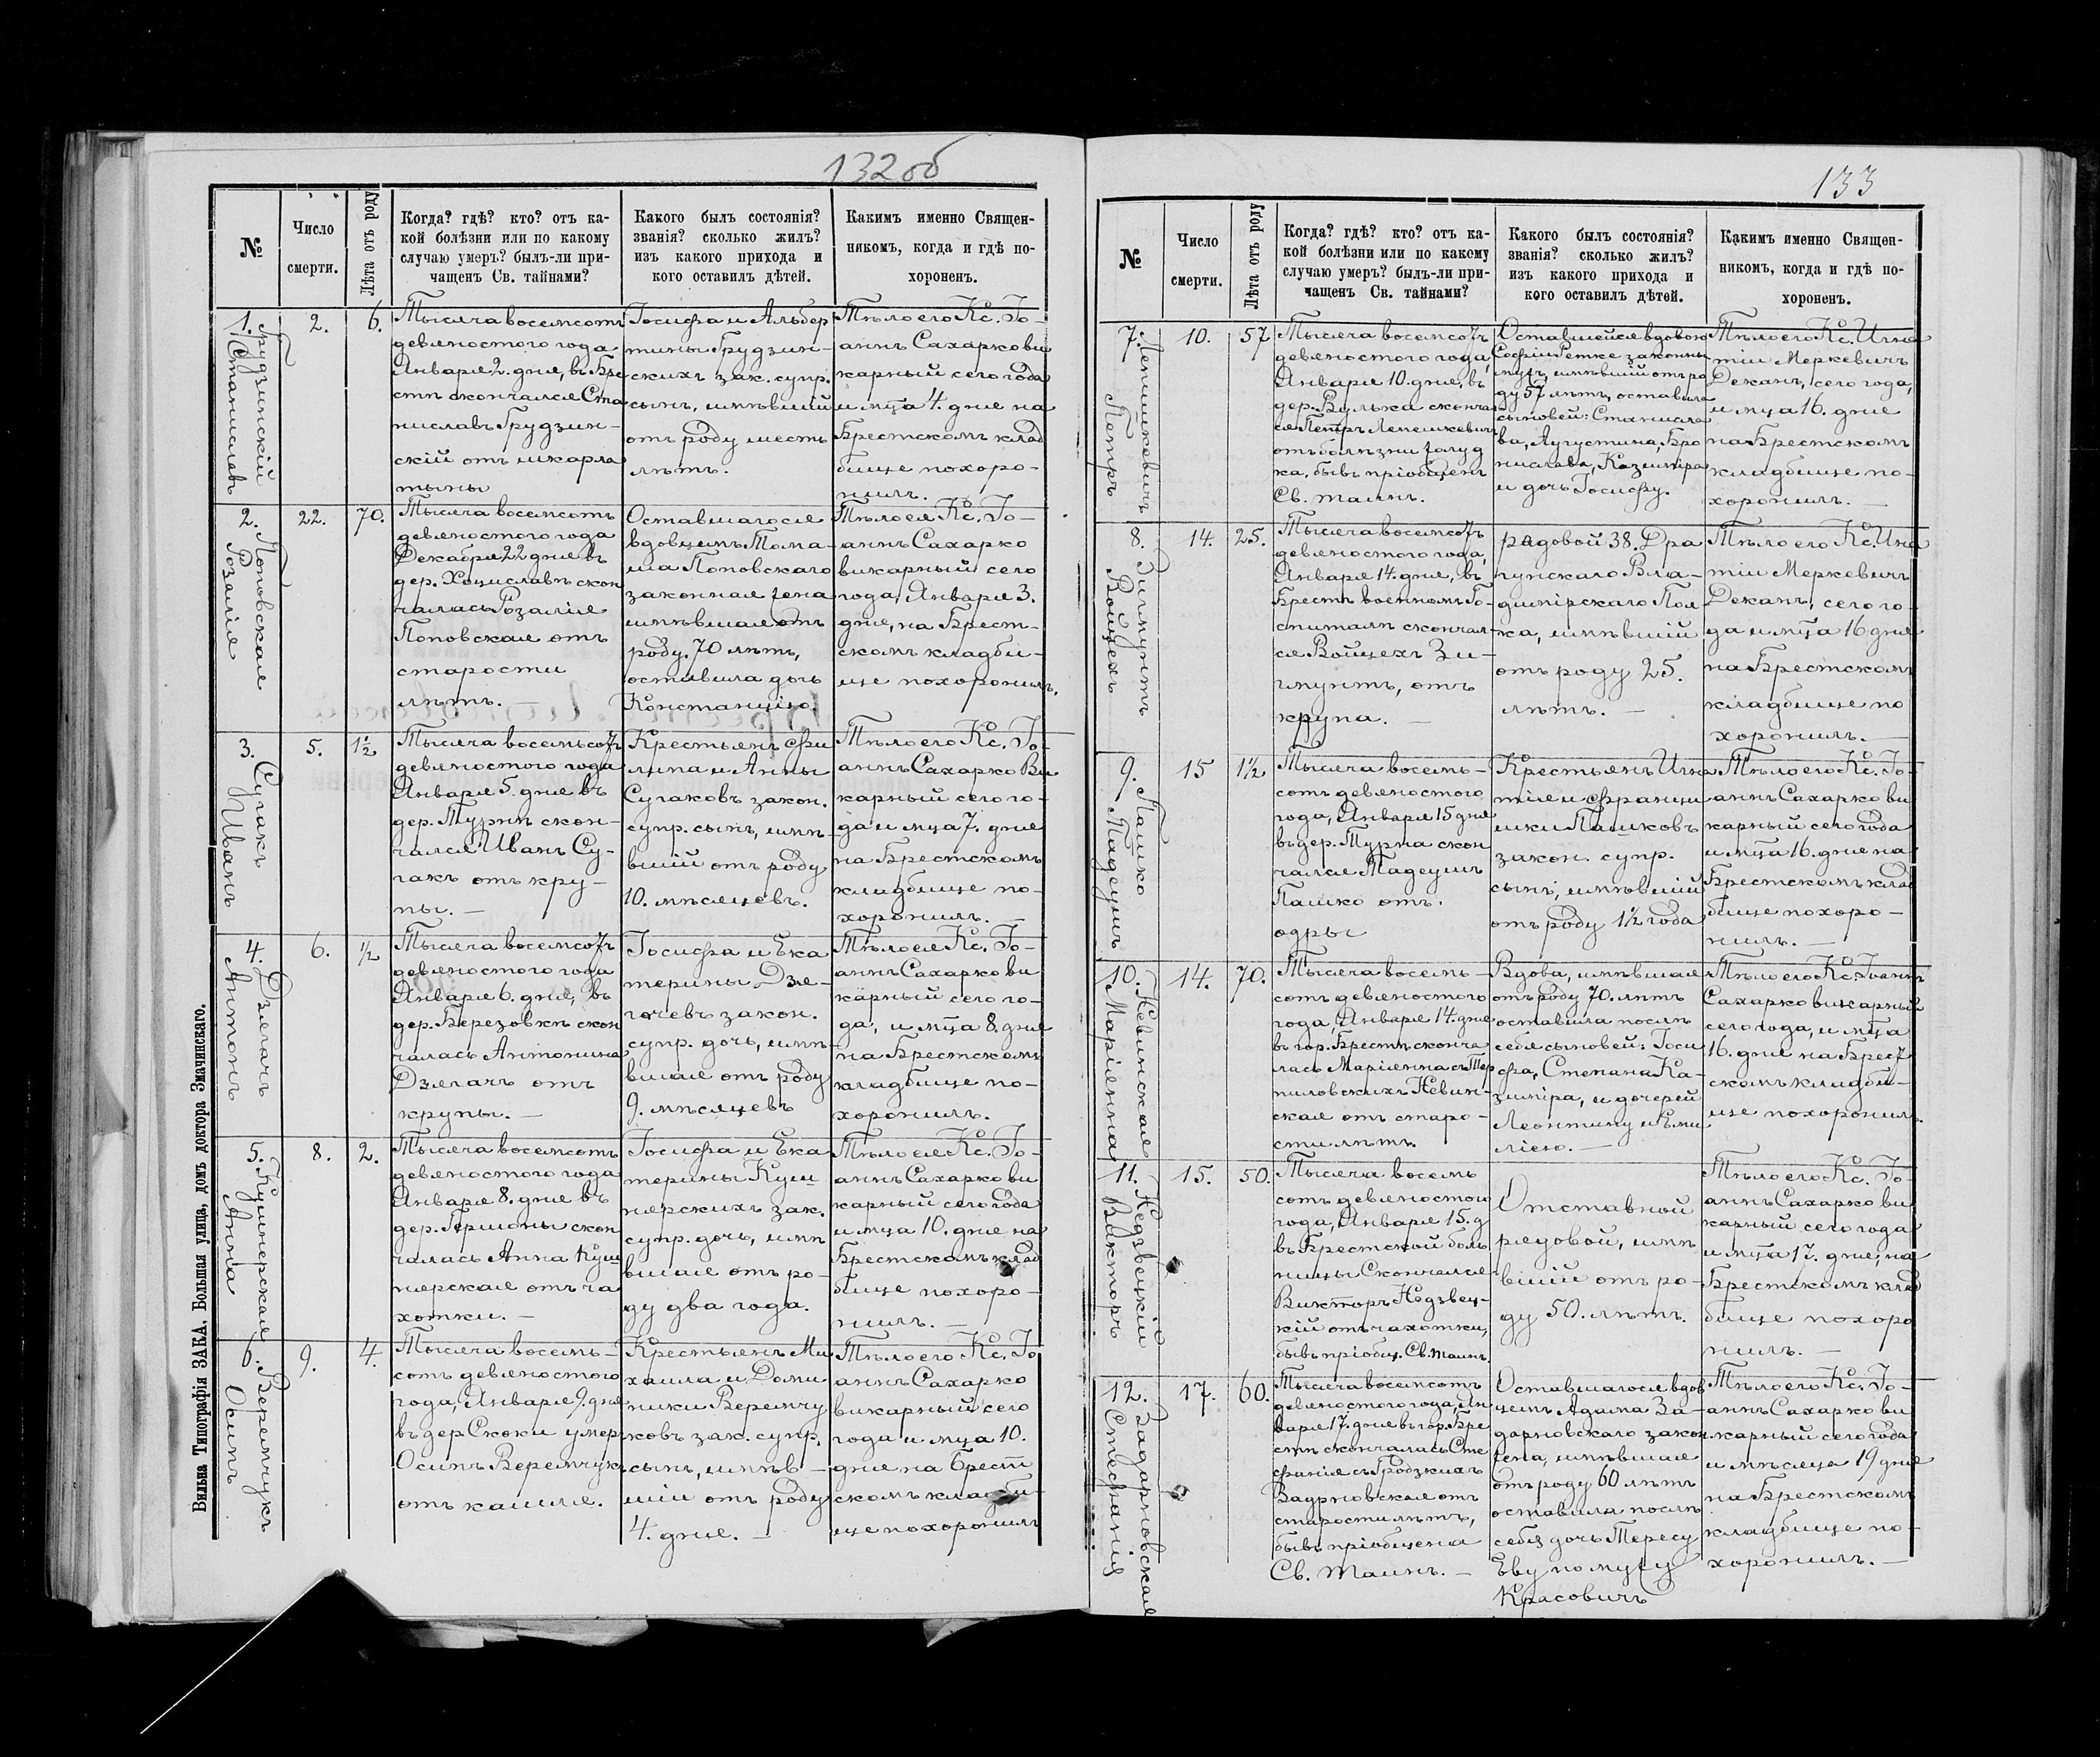 132об
№
Число
смерти.
Лѣта отъ роду
Когда? гдѣ? кто? отъ ка-
кой болѣзни или по какому
случаю умеръ? былъ-ли при-
чащенъ Св. тайнами?
Какого былъ состоянія?
званія? сколько жилъ?
изъ какого прихода и
кого оставилъ дѣтей.
Какимъ именно Священ-
никомъ, когда и гдѣ по-
хороненъ.
1.
Грудзинскій
Станиславъ
2.
6.
Тысяча восемсотъ
девяностого года
Января 2. дня, въ Бре
стѣ скончался Ста
ниславъ Грудзин-
скій отъ шкарла
тыны
Іосифа и Альбер
тины Грудзин-
скихъ зак. супр.
сынъ, имѣвшій
отъ роду шесть
лѣтъ.
Тѣло его Кс. Іо-
аннъ Сахарко ви
карный сего года
и мца 4. дня на
Брестскомъ клад
бище похоро-
нилъ.
2.
Поповская
Розалія
22.
70.
Тысяча восемсотъ
девяностого года
Декабря 22 дня въ
дер. Хоциславѣ скон
чалась Розалія
Поповская отъ
старости
лѣтъ. —
Оставшагося
вдовцемъ Тома-
ша Поповскаго
законная жена
имѣвшая отъ
роду. 70 лѣтъ,
оставила дочь
Констанцію.
Тѣло ея Кс. Іо-
аннъ Сахарко
викарный сего
года, Января 3.
дня, на Брест-
скомъ кладби-
ще похоронилъ.
3.
Сугакъ
Иванъ
5.
1½
Тысяча восемьсотъ
девяностого года
Января 5. дня въ
дер. Турнѣ скон-
чался Иванъ Су-
гакъ отъ кру-
пы. —
Крестьянъ Фи
липа и Анны
Сугаковъ закон.
супр. сынъ, имѣ-
вшій отъ роду
10. мѣсяцевъ.
Тѣло его Кс. Іо-
аннъ Сахарко Ви
карный сего го-
да и мца 7. дня
на Брестскомъ
кладбище по-
хоронилъ. —
4.
Дзягачъ
Антонъ
6.
½
Тысяча восемсотъ
девяностого года
Января 6. дня, въ
дер. Березовкѣ скон
чалась Антонина
Дзягачъ отъ
крупы. —
Іосифа и Ека
терины Дзя-
гачевъ закон.
супр. дочь, имѣ-
вшая отъ роду
9. мѣсяцевъ
Тѣло ея Кс. Іо-
аннъ Сахарко ви
карный сего го-
да, и мца 8. дня
на Брестскомъ
кладбище по-
хоронилъ.
5.
Кушнерская
Анна
8.
2.
Тысяча восемсотъ
девяностого года
Января 8. дня въ
дер. Гершоны скон
чалась Анна Куш
нерская отъ ча
хотки. —
Іосифа и Ека
терины Куш
нерскихъ зак.
супр. дочь, имѣ
вшая отъ ро-
ду два года.
Тѣло ея Кс. Іо-
аннъ Сахарко ви
карный сего года
и мца 10. дня на
Брестскомъ клад
бище похоро-
нилъ. —
6.
Веремчукъ
Осипъ
9.
4.
Тысяча восемь-
сотъ девяностого
года, Января 9. дня
въ дер Скоки умеръ
Осипъ Веремчукъ
отъ кашля.
Крестьянъ Ми
хаила и Доми
ники Веремчу
ковъ зак. супр.
сынъ, имѣв-
шій отъ роду
4. дня. —
Тѣло его Кс. Іо
аннъ Сахарко
викарный сего
года и мца 10.
дня на Брест
скомъ кладби-
ще похоронилъ
Вильна Типографія ЗАКА, Большая улица, домъ доктора Змачинскаго.
133
№
Число
смерти.
Лѣта отъ роду
Когда? гдѣ? кто? отъ ка-
кой болѣзни или по какому
случаю умеръ? былъ-ли при-
чащенъ Св. тайнами?
Какого былъ состоянія?
званія? сколько жилъ?
изъ какого прихода и
кого оставилъ дѣтей.
Какимъ именно Священ-
никомъ, когда и гдѣ по-
хороненъ.
7.
Лепешкевичъ
Петръ
10.
57
Тысяча восемсотъ
девяностого года,
Января 10. дня, въ
дер. Вулька сконча
ся Петръ Лепешкевичъ
отъ болѣзни желуд
ка, бывъ пріобщенъ
Св. таинъ.
Оставшейся вдовою
Софіи Ретке законны
мужъ, имѣвшій отъ ро
ду 57 лѣтъ, оставилъ
сыновей: Станисла
ва, Аугустина, Бро
нислава, Казиміра
и дочь Іосифу.
Тѣло его Кс. Игна
тій Меркевичъ
Деканъ, сего года,
и мца 16. дня
на Брестскомъ
кладбище по-
хоронилъ. —
8.
Зигмунтъ
Войцехъ
14.
25.
Тысяча восемсотъ
девяностого года,
Января 14. дня, въ
Брестѣ военномъ Го-
спиталѣ скончал-
ся Войцехъ Зи-
гмунтъ, отъ
крупа. —
рядовой 38. Дра
гунскаго Вла-
димірскаго Пол
ка, имѣвшій
отъ роду 25.
лѣтъ. —
Тѣло его Кс. Игна
тій Меркевичъ
Деканъ, сего го-
да и мца 16 дня
на Брестскомъ
кладбище по
хоронилъ. —
9.
Пашко
Тадеушъ
15
1½
Тысяча восемь-
сотъ девяностого
года, Января 15 дня
въ дер. Турна скон
чался Тадеушъ
Пашко отъ.
одры
Крестьянъ Игна
тія и Франци
шки Пашковъ
закон. супр.
сынъ, имѣвшій
отъ роду 1½ года
Тѣло его Кс. Іо-
аннъ Сахарко ви
карный сего года
и мца 16. дня на
Брестскомъ клад
бище похоро-
нилъ. —
10.
Невинская
Маріянна
14.
70.
Тысяча восемь-
сотъ девяностого
года, Января 14. дня
въ гор. Брестѣ сконча
лась Маріянна съ Тер
пиловскихъ Невин-
ская отъ старо-
сти лѣтъ.
Вдова, имѣвшая
отъ роду 70. лѣтъ
оставила послѣ
себя сыновей: Іоси
фа, Степана Ка-
зиміра, и дочерей
Леонтину и Эми
лію. —
Тѣло его Кс. Іоаннъ
Сахарко викарный
сего года, и мца
16. дня на Брест
скомъ кладби-
ще похоронилъ.
11.
Недзвецкій
Викторъ
15.
50.
Тысяча восемь
сотъ девяностого
года, Января 15. д
въ Брестской боль
ницы Скончался
Викторъ Недзвец-
кій отъ чахотки,
бывъ пріобщ. Св. таинъ.
Отставной
рядовой, имѣ
вшій отъ ро-
ду 50. лѣтъ.
Тѣло его Кс. Іо-
аннъ Сахарко ви
карный сего года
и мца 17. дня, на
Брестскомъ клад
бище похоро
нилъ. —
12.
Задарновская
Стефанія
17.
60.
Тысяча восемсотъ
девяностого года, Ян
варя 17. дня въ гор. Бре
стѣ скончалась Сте
фанія съ Гродзкихъ
Задрновская отъ
старости лѣтъ,
бывъ пріобщена
Св. Таинъ. —
Оставшагося вдов
цемъ Адама За-
дарновскаго закон.
жена, имѣвшая
отъ роду 60 лѣтъ
оставила послѣ
себя дочь Тересу
Еву по мужу
Красовичъ
Тѣло его Кс. Іо-
аннъ Сахарко ви
карный сего года
и мѣсяца 19 дня
на Брестскомъ
кладбище по-
хоронилъ. —